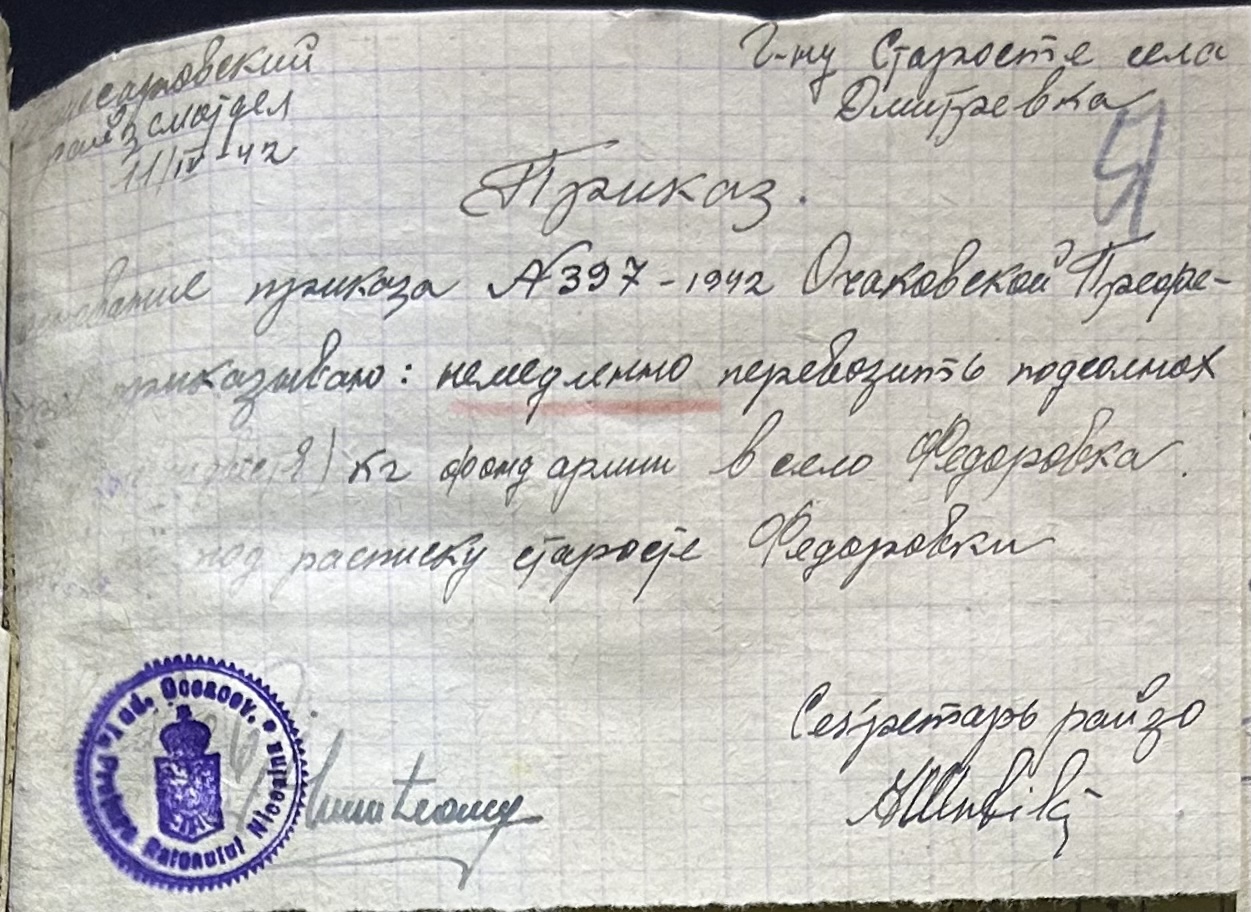 райземотдел
11/IV-42
Г-ну Старосте села
Дмитревка
Приказ.
приказа №397-1942 Очаковской Префе-
приказываю: немедленно перевозить подсолнох
кг фонд армии в село Федоровка.
под расписку старосте Федоровки
Секретарь райзо
Jud. Oceacov. Pretura Raionului Nicoaini